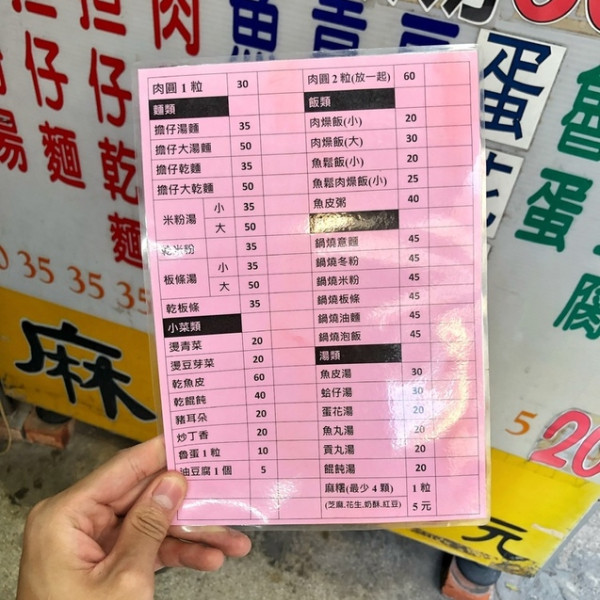 肉圓 1 粒 30
麵類
擔仔湯麵 35
擔仔大湯麵 50
擔仔乾麵 35
擔仔大乾麵 50
米粉湯 小 35
大 50
乾米粉 35
板條湯 小 35
大 50
乾板條 35
小菜類
燙青菜 20
燙豆芽菜 20
乾魚皮 60
乾餛飩 40
豬耳朵 20
炒丁香 20
魯蛋 1 粒 10
油豆腐 1 個 5
肉圓 2 粒(放一起) 60
飯類
肉燥飯(小) 20
肉燥飯(大) 30
魚鬆飯(小) 20
魚鬆肉燥飯(小) 25
魚皮粥 40
鍋燒意麵 45
鍋燒冬粉 45
鍋燒米粉 45
鍋燒板條 45
鍋燒油麵 45
鍋燒泡飯 45
湯類
魚皮湯 30
蛤仔湯 30
蛋花湯 20
魚丸湯 20
貢丸湯 20
餛飩湯 20
麻糬(最少 4 顆) 1 粒
(芝麻,花生,奶酥,紅豆) 5 元
35 35 35
麻
元
5 20